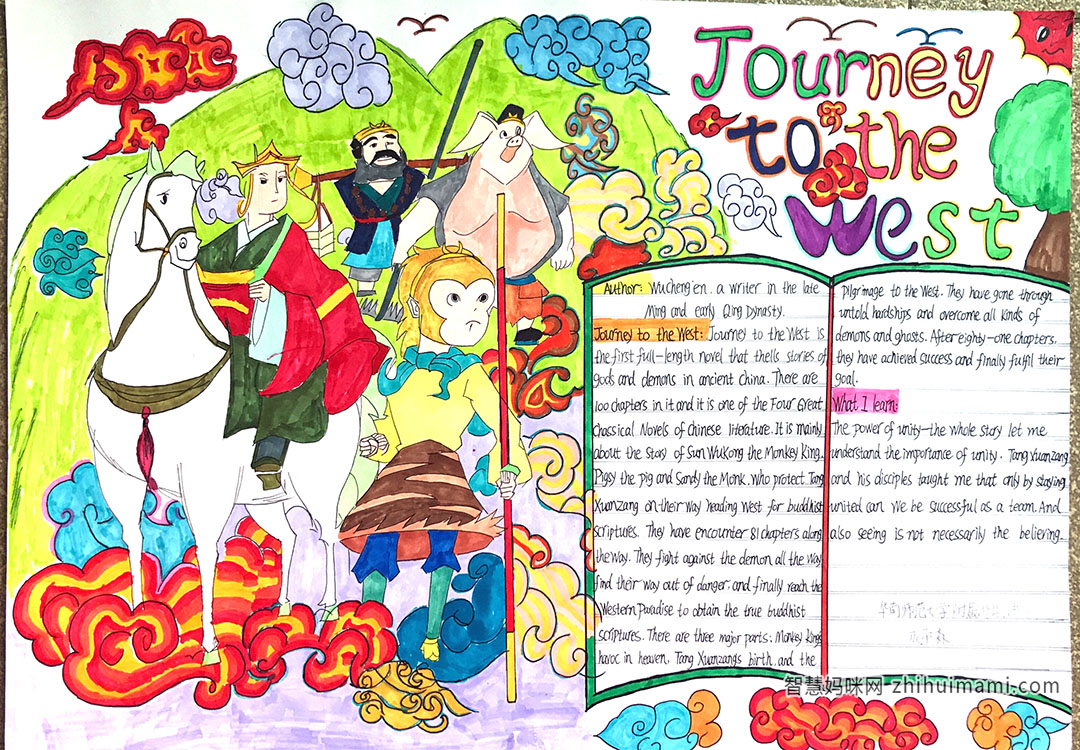 Journey
to the
West
Author: Wucheng'en. a writer in the late
Ming and early Qing Dynasty.
Journey to the West: Journey to the West is
the first full-length novel that thells stories of
gods and demons in ancient China. There are
100 chapters in it and it is one of the Four Great
Classical Novels of Chinese literature. It is mainly
about the story of Sun WuKong the Monkey King.
Pigsy the pig and Sandy the Monk. Who protect Tang
Xuanzang on their way heading West for buddhist
scriptures. They have encounter 81 chapters along
the way. They fight against the demon all the way
find their way out of danger and finally reach the
Western Paradise to obtain the true buddhist
scriptures. There are three major parts: Monkey King's
havoc in heaven, Tang Xuanzang's birth, and the
pilgrimage to the West. They have gone through
untold hardships and overcome all kinds of
demons and ghosts. After eighty-one chapters,
they have achieved success and finally fulfil their
goal.
What I learn:
The power of unity—the whole story let me
understand the importance of unity. Tang Xuanzang
and his disciples taught me that only by staying
united can We be successful as a team. And
also seeing is not necessarily the believing.
华南师范大学附属
智慧妈咪网-zhihuimami.com